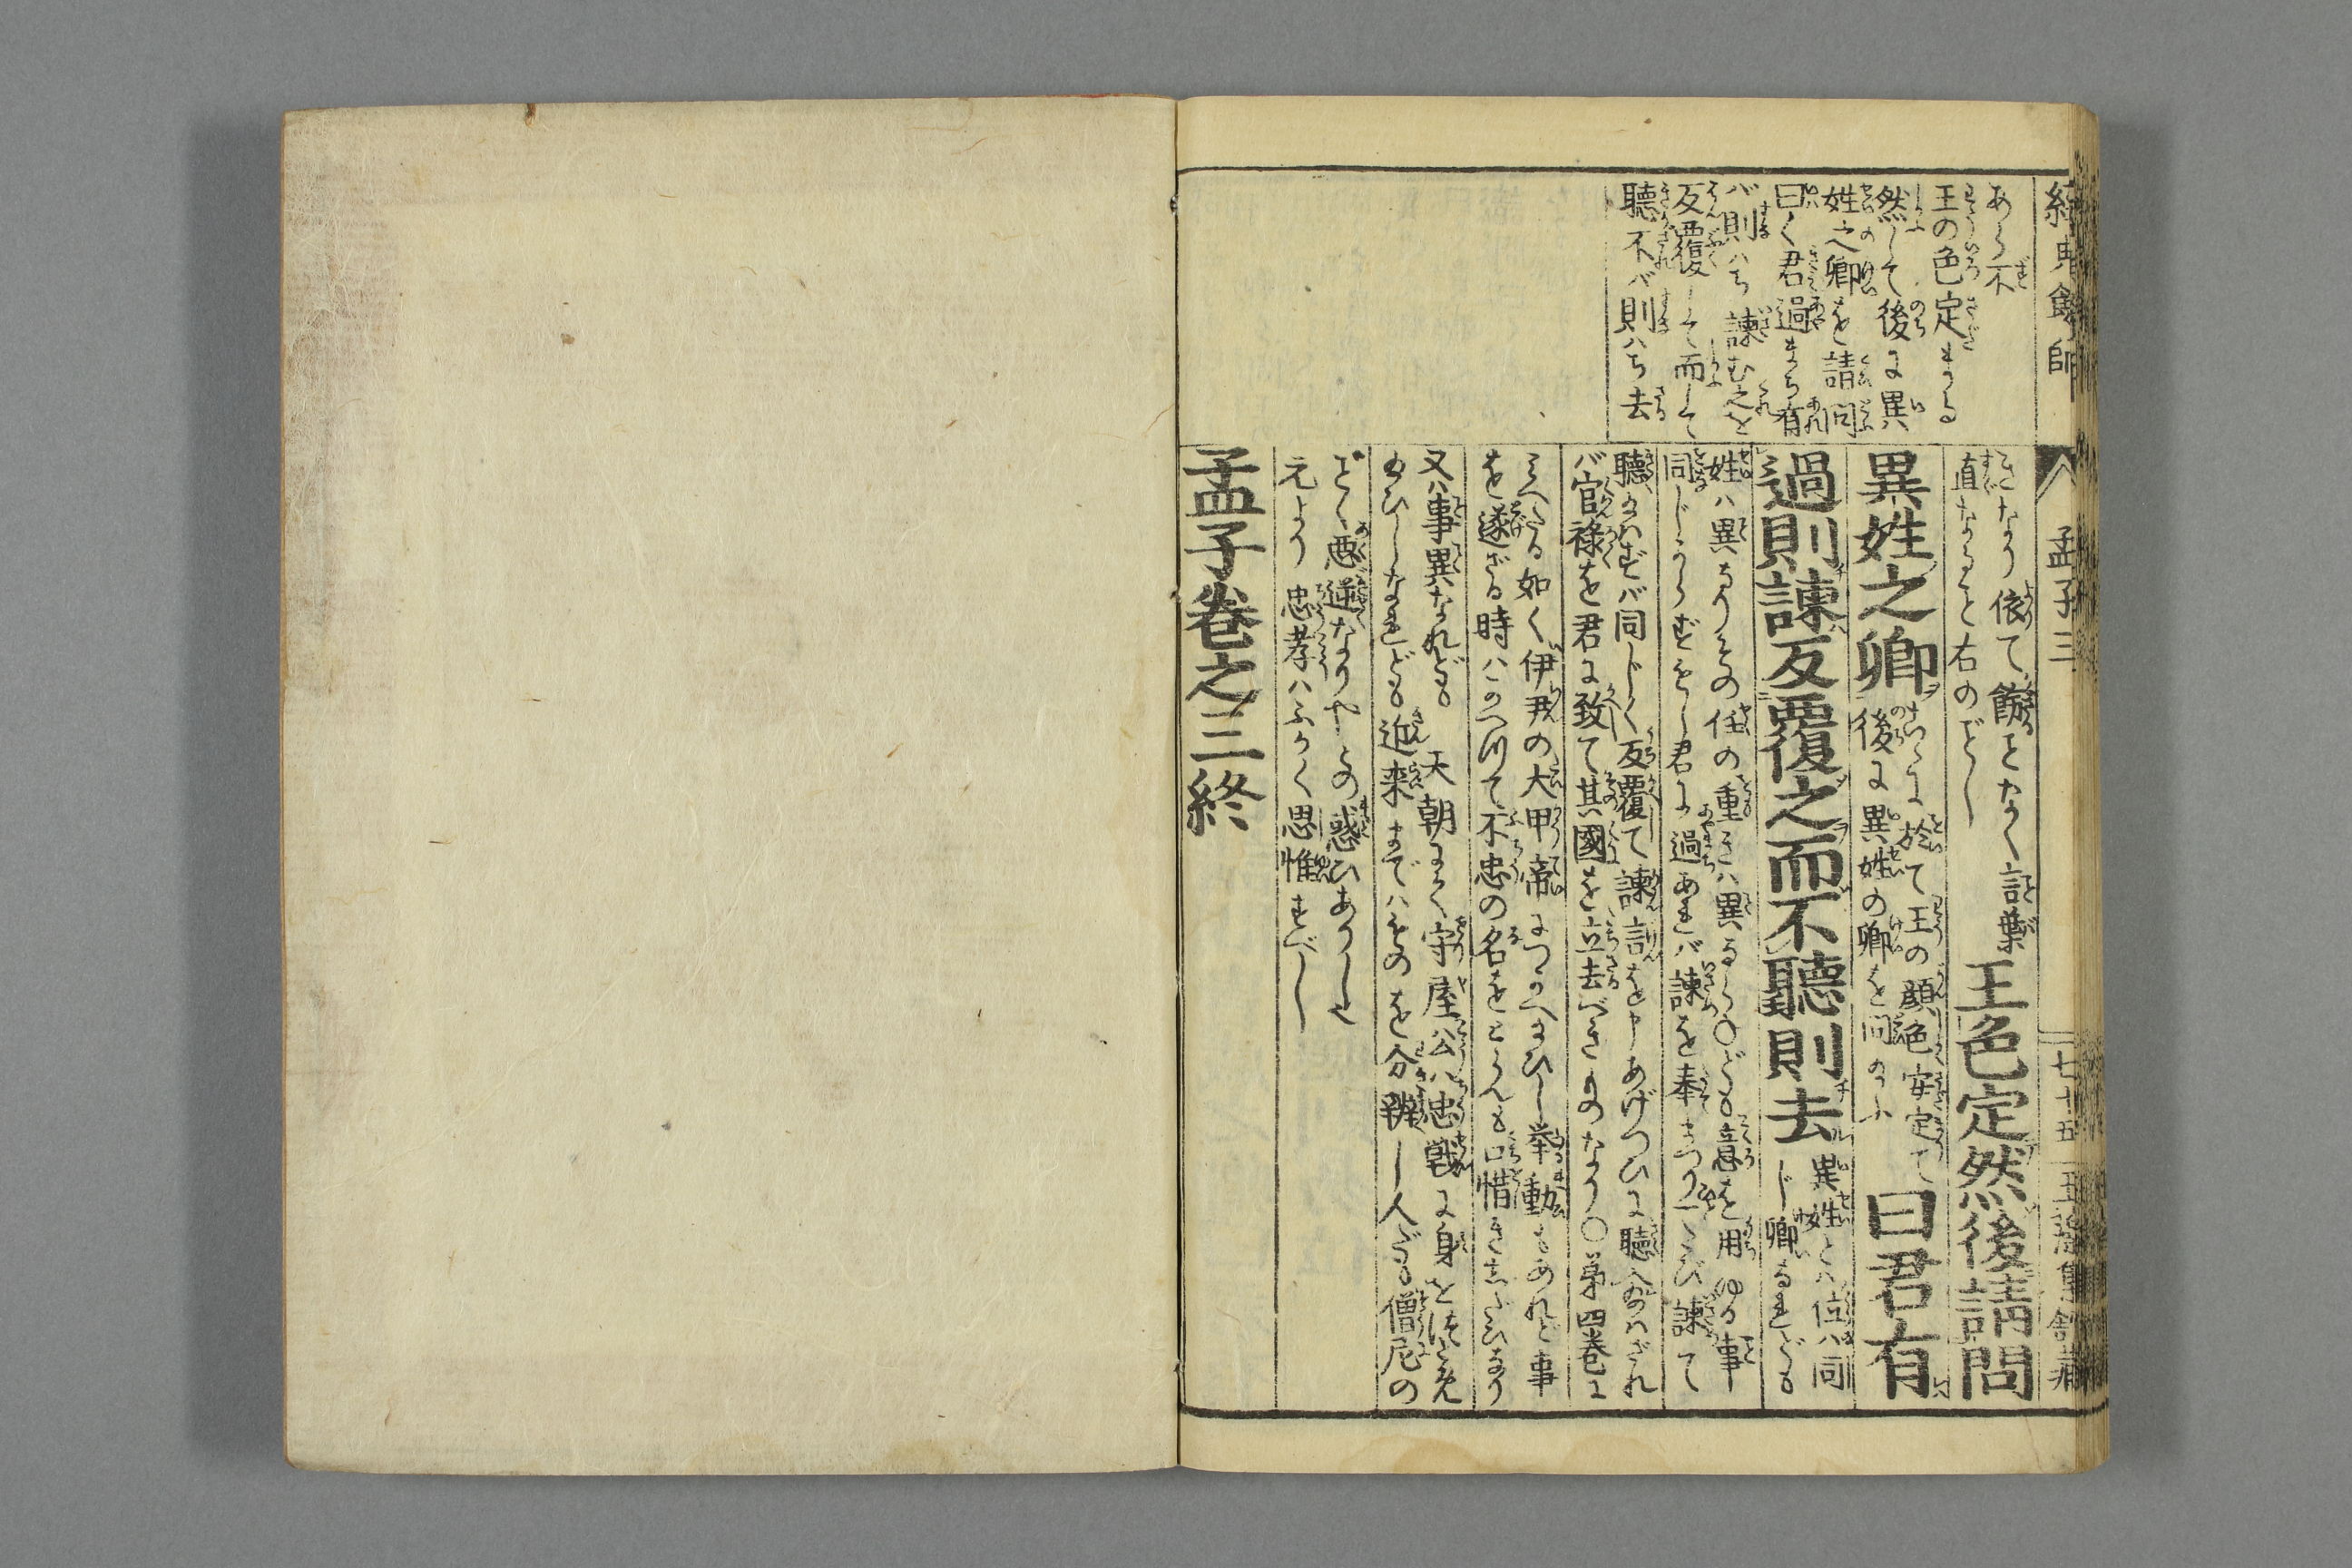 經典餘師
孟子三
七十五
あら不
王の色定まる
然して後に異
姓之卿を請問
曰く君過まち有
バ則ハち諫む之を
反覆して而して
聴不バ則ハち去
きなり依て餝となく言葉
直なること右のごとし
王色定然後請問
異姓之卿
こゝに於て王の顔色安定て
後に異姓の卿を問のふ
曰君有
過則諫反覆之而不聽則去
異姓とハ位ハ同
じ卿なれども
姓ハ異なりその任の重きハ異なら〇ども意を用ゆる事
同じからずもし君に過あれバ諫を奉まつり一たび諫て
聴給ハずバ同じく反覆て諫言を申あげつひに聴入給ハざれ
バ官禄を君に致て其國を立去べきものなり〇第四巻に
みへたる如く伊尹の大甲帝につかへ給ひし挙動もあれど事
を遂ざる時ハかへつて不忠の名をとらんも口惜きしだひなり
又ハ事異なれども 天朝にて守屋公ハ忠戦に身をほろぼし
給ひしなれども近来まではその を分辨し人ども僧尼の
ごとく悪逆なりやとの惑ひありした
元より忠孝ハふかく思惟すべし
孟子巻之三終